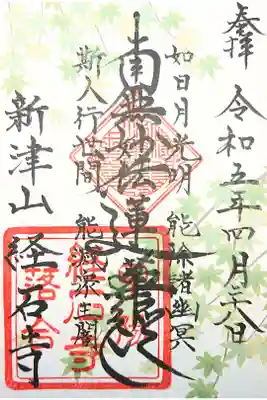 奉拝
令和五年四月二八日
如日月光明
能除諸幽冥
南無妙法蓮華経
斯人行世間
能滅衆生闇
新津山
経石寺